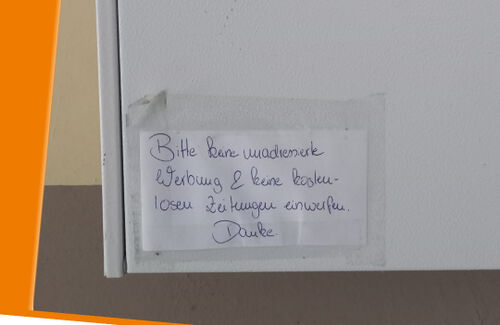 Bitte keine unadressierte
Werbung & keine kosten-
losen Zeitungen einwerfen.
Danke.